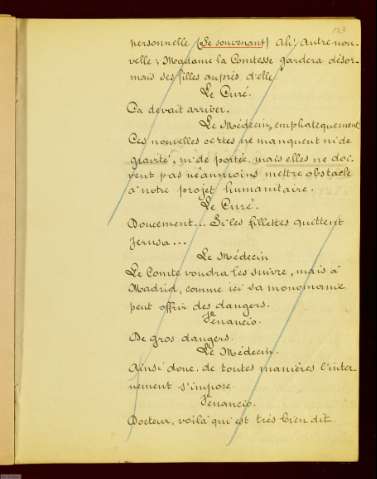 123
personnelle (Se souvenant) Ah! Autre nou-
velle; Madame la Comtesse gardera désor-
mais ses filles auprès d'elle.
Le Curé.
Ça devait arriver.
Le Médecin, emphatiquement
Ces nouvelles certes ne manquent ni de
gravité, ni de portée, mais elles ne doi-
vent pas néanmoins mettre obstacle
à notre projet humanitaire.
Le Curé.
Doucement... Si les fillettes quittent
Jerusa...
Le Médecin
Le Comte voudra les suivre, mais à
Madrid, comme ici sa monomanie
peut offrir des dangers.
Venancio.
De gros dangers.
Le Médecin.
Ainsi donc, de toutes manières l'inter-
nement s'impose.
Venancio.
Docteur, voilà qui est très bien dit